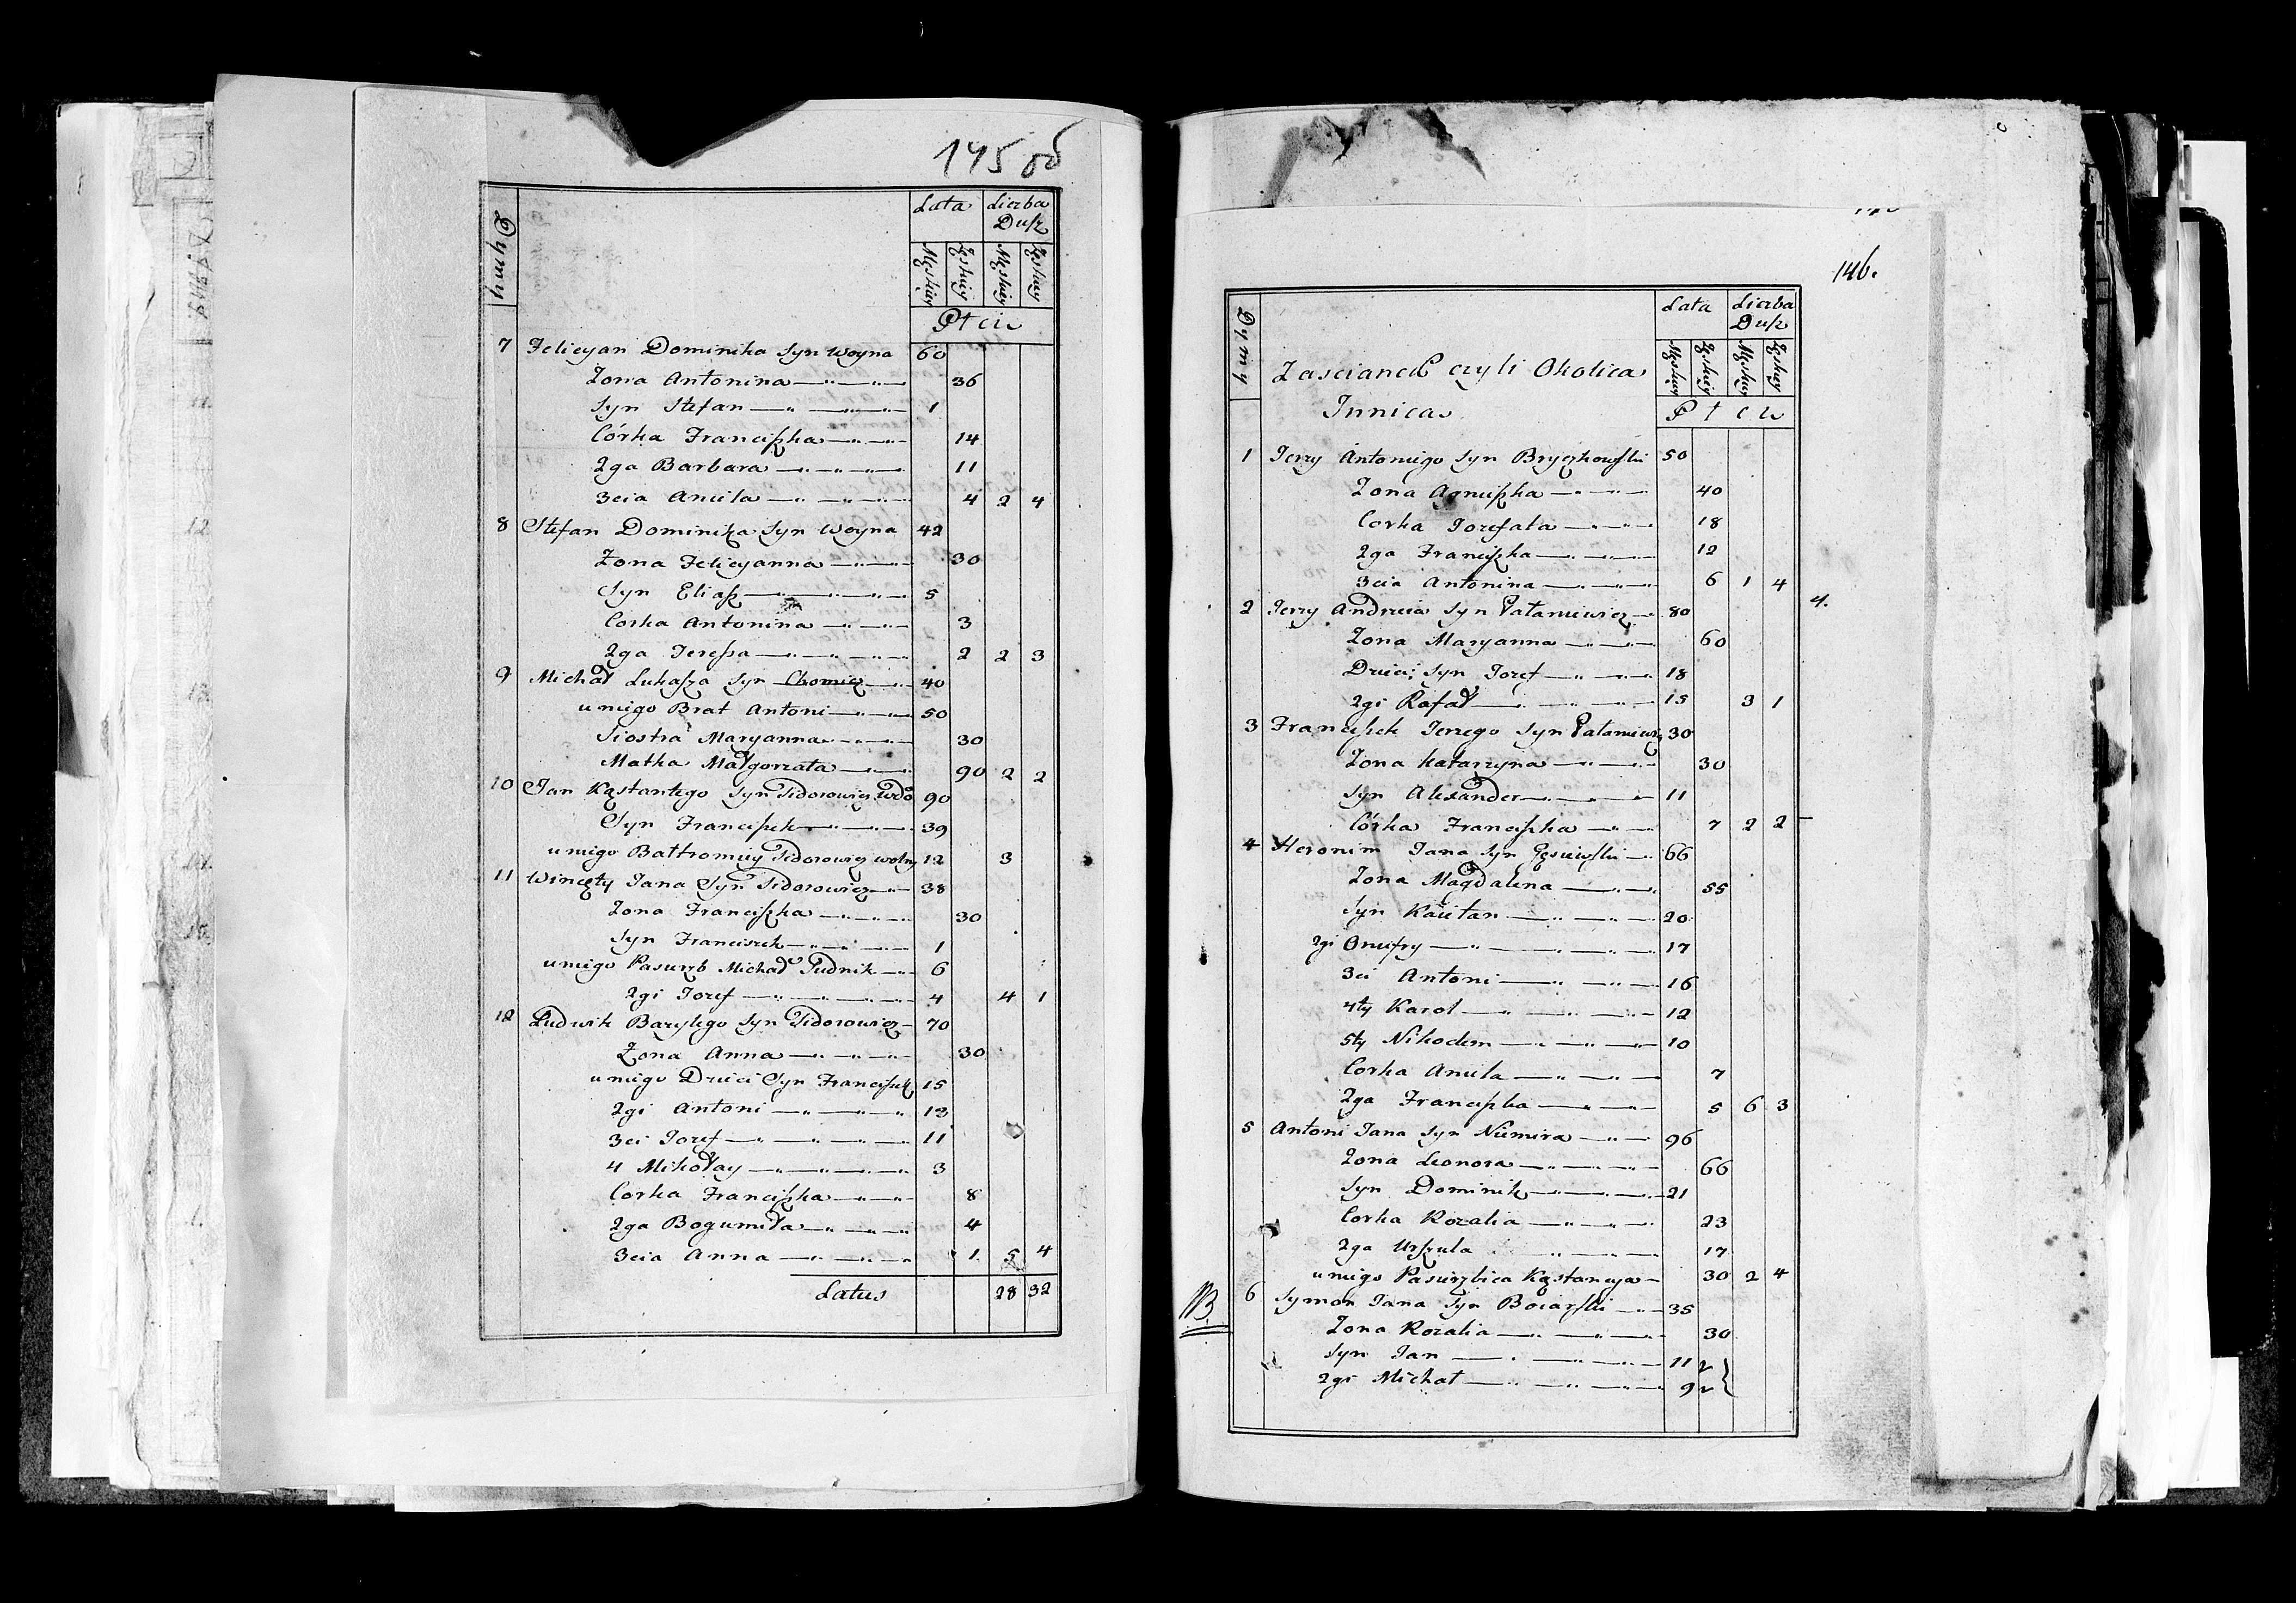 145 об
Dymy
Lata Liczba Dusz
Męskiey Żęskiey Męskiey Żęskiey
Płci
7 Felicyan Dominika Syn Woyna 60
Zona Antonina 36
Syn Stefan 1
Córka Franciszka 14
2ga Barbara 11
3cia Aniela 4 2 4
8 Stefan Dominika Syn Woyna 42
Żona Felicyanna 30
Syn Eliasz 5
Corka Antonina 3
2ga Teressa 2 2 3
9 Michał Łukasza Syn Chomicz 40
u niego Brat Antoni 50
Siostra Maryanna 30
Matka Małgorzata 90 2 2
10 Jan Kąstantego Syn Sidorowicz Wdo 90
Syn Franciszek 39
u niego Bałtromiey Sidorowicz wolny 12 3
11 Wincęty Jana Syn Sidorowicz 38
Zona Franciszka 30
Syn Franciszek 1
u niego Pasierzb Michał Dudnik 6
2gi Jozef 4 4 1
12 Ludwik Bazylego Syn Sidorowicz 70
Żona Anna 30
u niego Dzieci Syn Franciszek 15
2gi Antoni 13
3ci Jozef 11
4 Mikołay 3
Corka Franciszka 8
2ga Bogumiła 4
3cia Anna 1 5 4
Latus 28 32
146.
Dymy
Lata Liczba Dusz
Męskiey Żęskiey Męskiey Żęskiey
Zascianek czyli Okolica
Innica
Płci
1 Jerzy Antoniego Syn Bryczkowski 50
Zona Agnieszka 40
Corka Jozefata 18
2ga Franciszka 12
3cia Antonina 6 1 4
2 Jerzy Andrzeia Syn Pataniewicz 80
4.
Zona Maryanna 60
Dzieci: Syn Jozef 18
2gi Rafał 15 3 1
3 Franciszek Jerzego Syn Pataniewicz 30
Zona Katarzyna 30
Syn Alexander 11
Córka Franciszka 7 2 2
4 Heronim Jana Syn Gęsiewski 66
Zona Magdalena 55
Syn Kaietan 20
2gi Onufry 17
3ci Antoni 16
4ty Karol 12
5ty Nikodem 10
Corka Aniela 7
2ga Franciszka 5 6 3
5 Antoni Jana Syn Niemira 96
Zona Leonora 66
Syn Dominik 21
Corka Rozalia 23
2ga Urszula 17
u niego Pasierzbica Kąstancya 30 2 4
NB 6 Symon Jana Syn Boiarski 35
Zona Rozalia 30
Syn Jan 11
2gi Michał 9